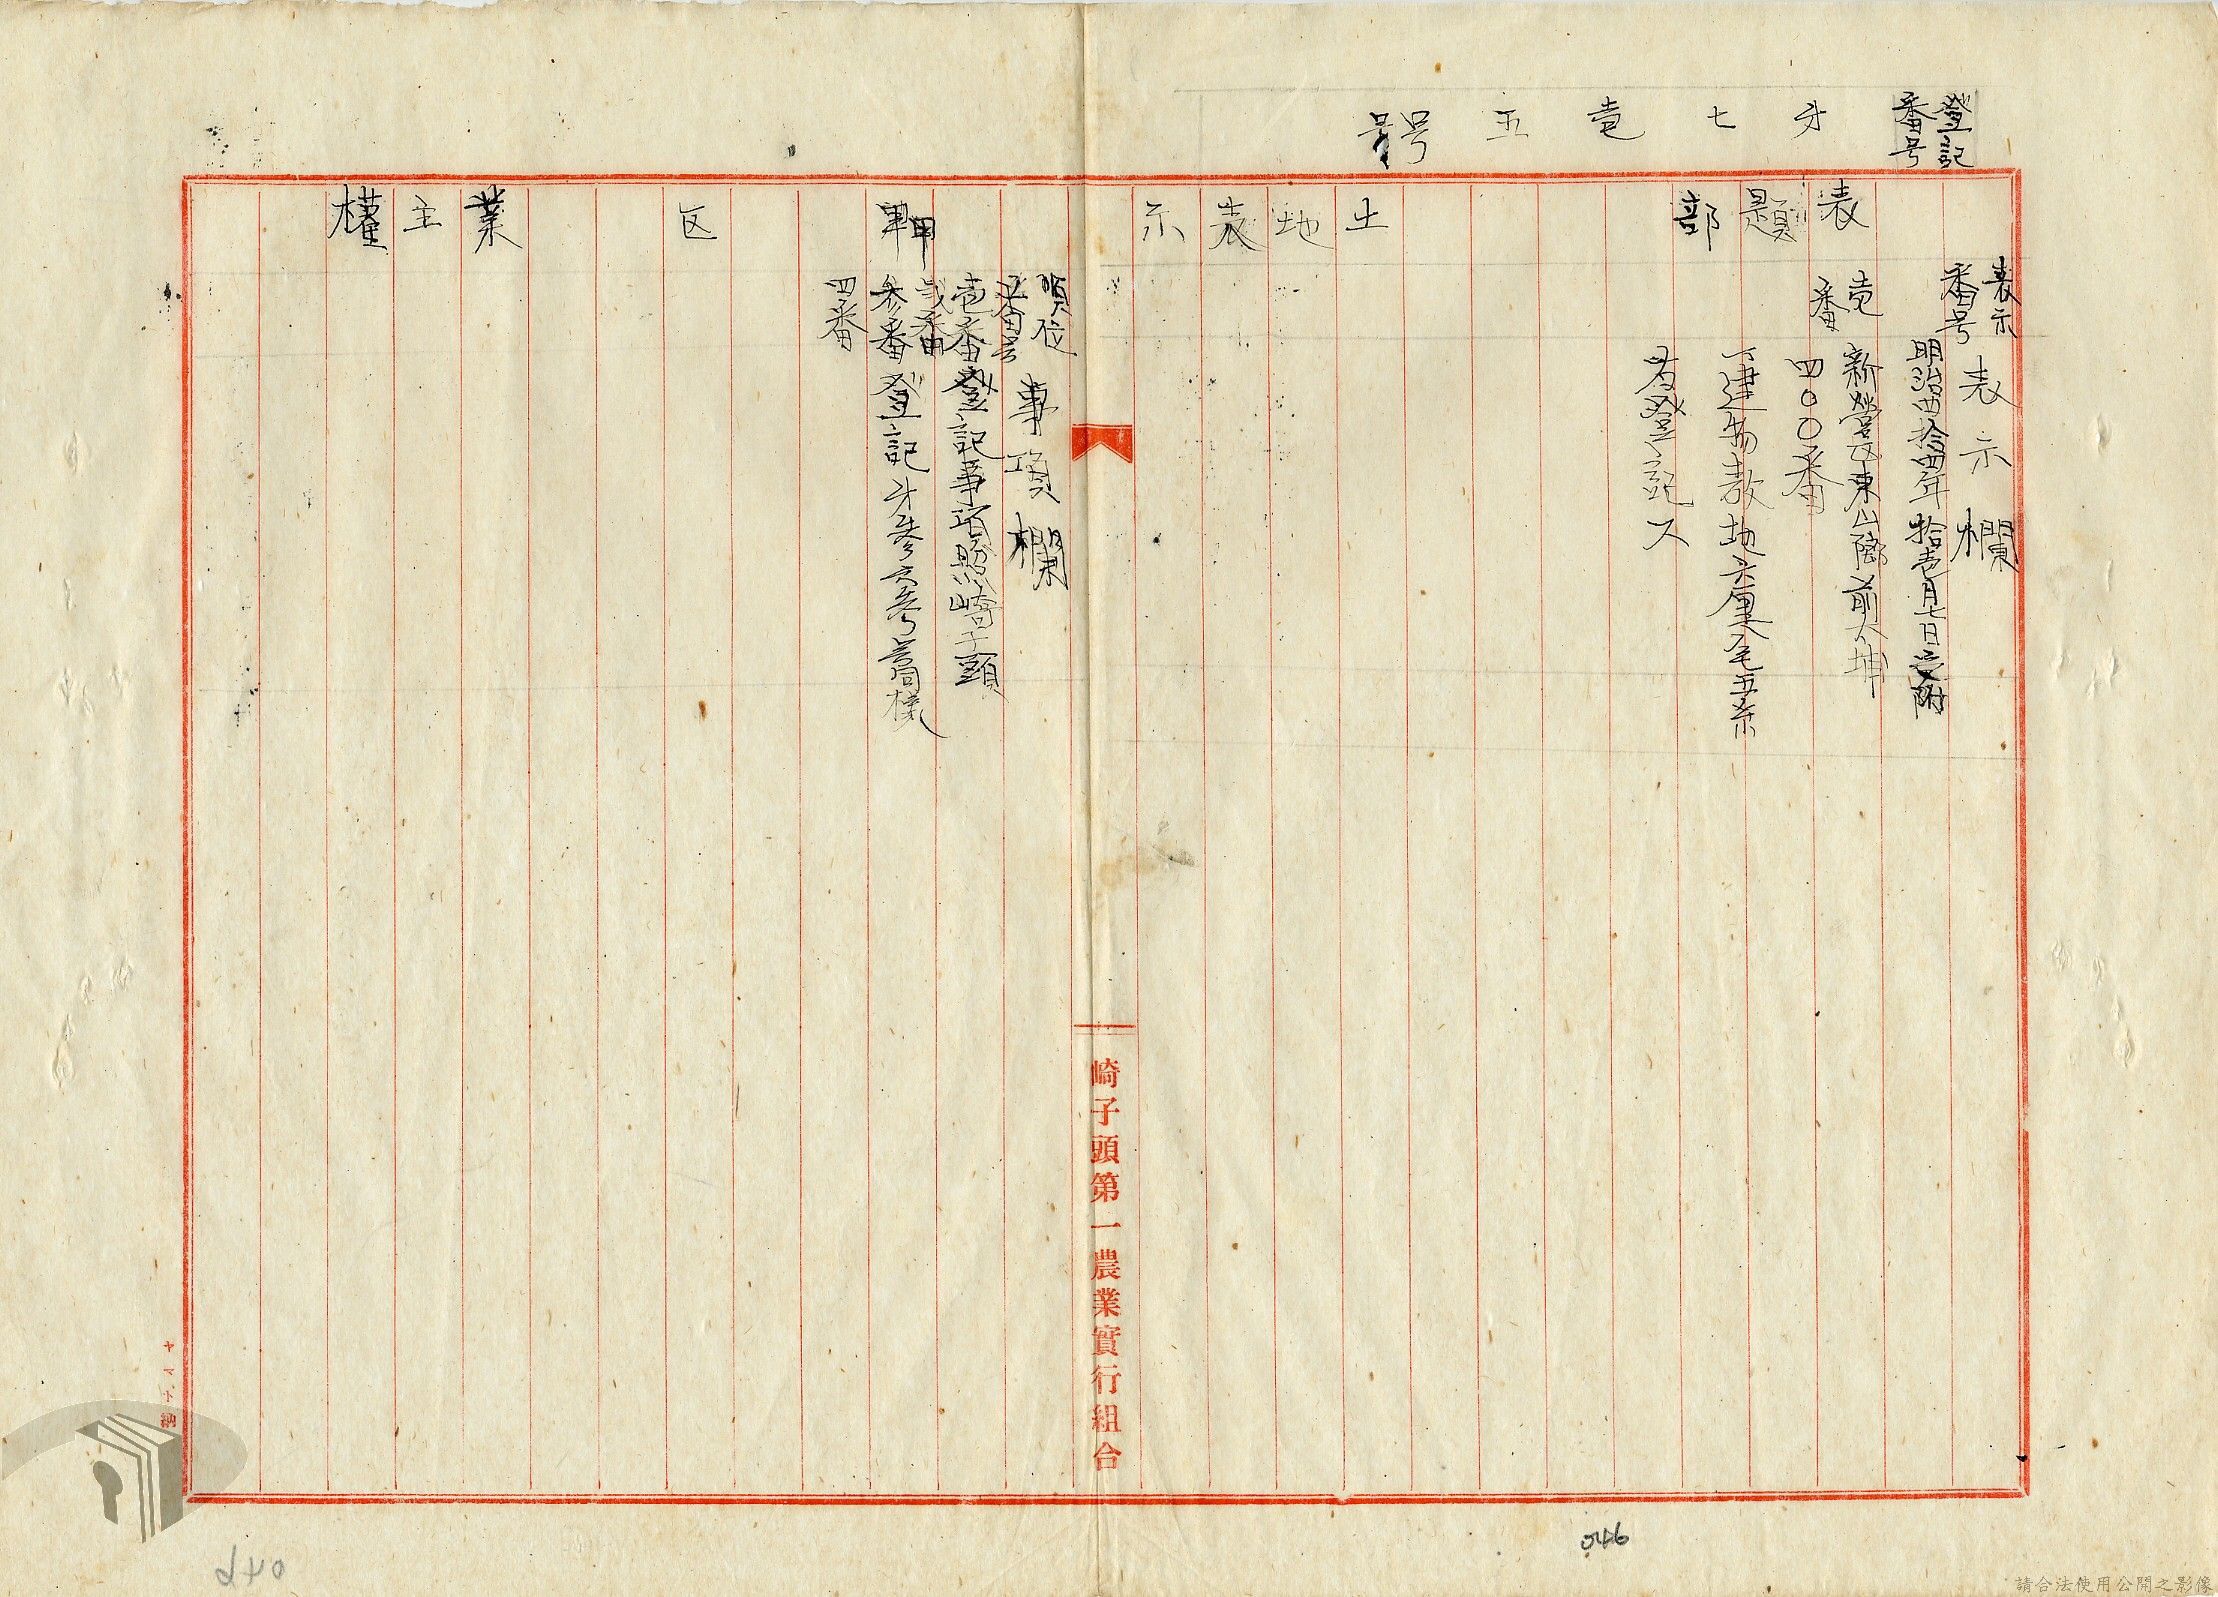 登記
番号
才七壱五号
表題部
表示
番号
表示欄
明治四拾四年拾壱月七日受附
壱
番
新營庄東山鄕前大埔
四〇〇番
一建物敷地六厘毛五糸
為登記ス
土地表示
順位
番号
事項欄
壱番登記事項照崎子頭
弍番
参番登記才参六参号同様
四番
甲区
業主權
崎子頭第一農業實行組合
046
請合法使用公開之影像